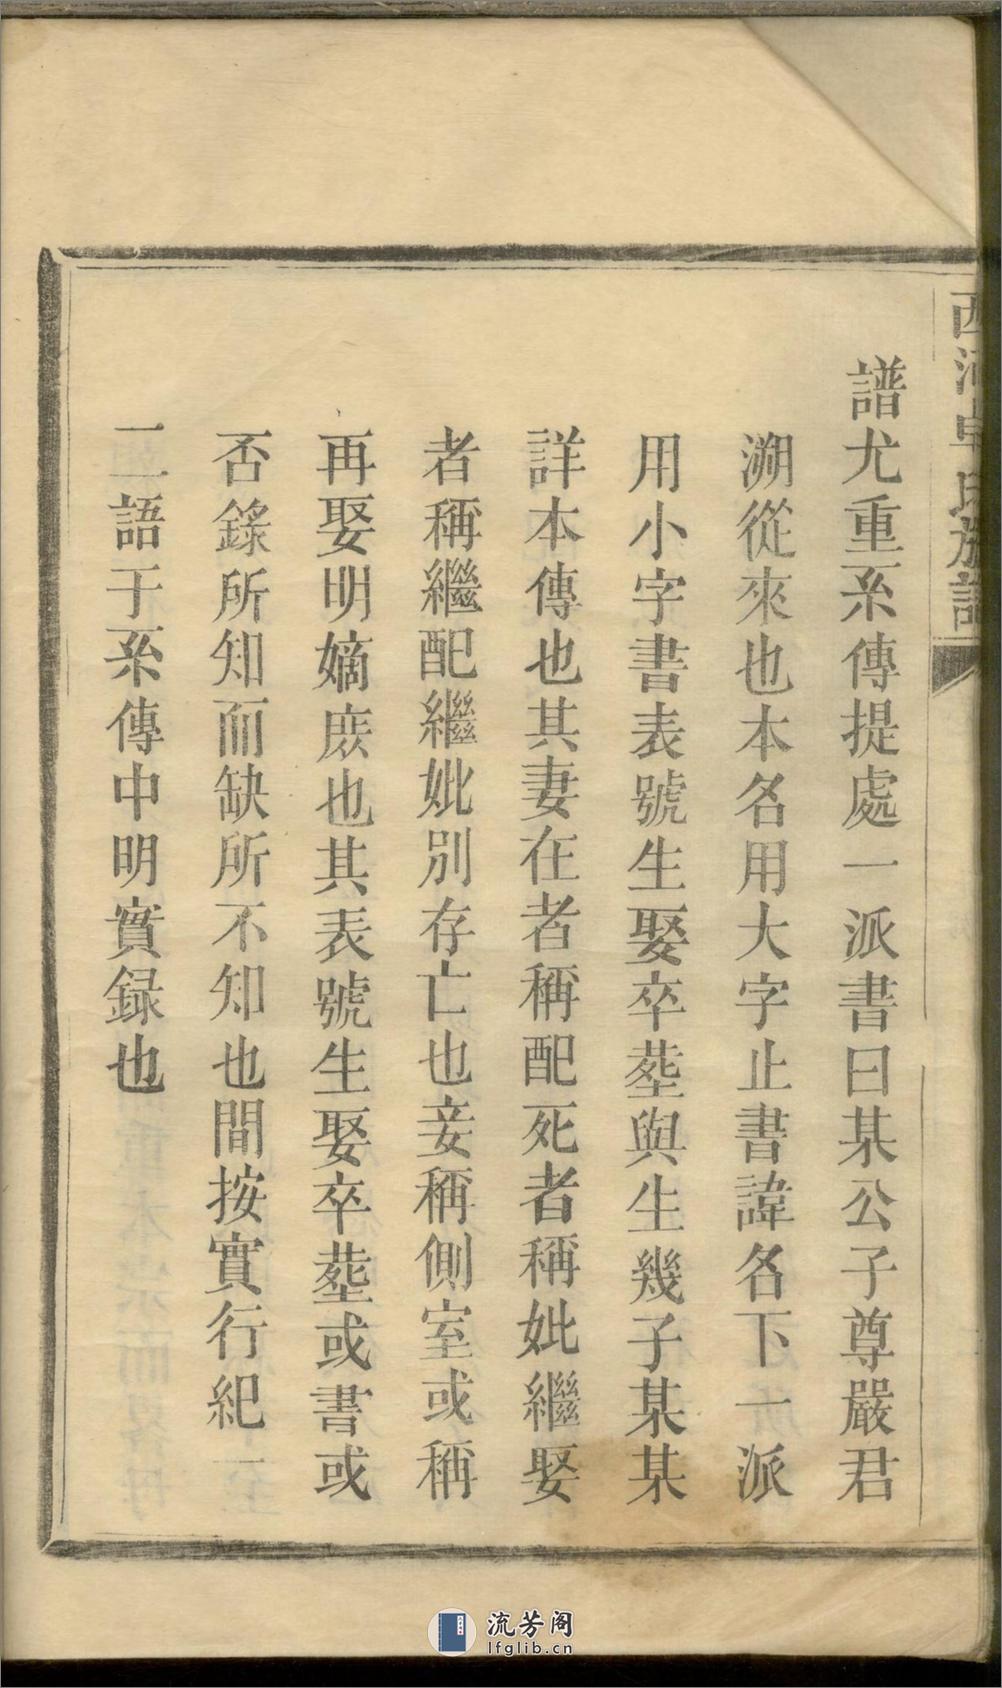 西河卓氏族譜
譜尤重系傳提處一派書曰某公子尊嚴君
溯從來也本名用大字止書諱名下一派
用小字書表號生娶卒塟與生幾子某某
詳本傳也其妻在者稱配死者稱妣繼娶
者稱繼配繼妣別存亡也妾稱側室或稱
再娶明嫡庻也其表號生娶卒塟或書或
否錄所知而缺所不知也間按實行紀一
二語于系傳中明實録也
流芳阁
lfglib.cn